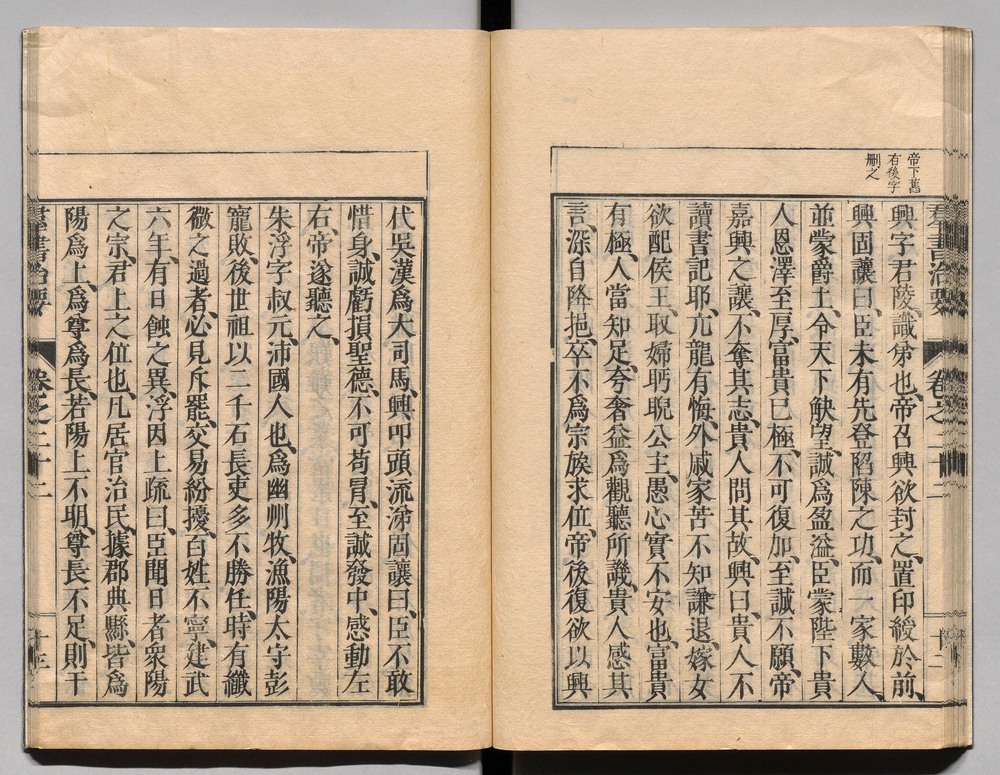 帝下舊
有後字
刪之
群書治要 卷之二十二 十二
興字君陵、識弟也、帝召興欲封之、置印綬於前、
興固讓曰、臣未有先登陷陳之功、而一家數人、
並蒙爵土、令天下觖望、誠爲盈溢、臣蒙陛下貴
人恩澤至厚、富貴已極、不可復加、至誠不願、帝
嘉興之讓、不奪其志、貴人問其故、興曰、貴人不
讀書記耶、亢龍有悔、外戚家苦不知謙退、嫁女
欲配侯王、取婦眄睨公主、愚心實不安也、富貴
有極、人當知足、夸奢益爲觀聽所譏、貴人感其
言、深自降挹、卒不爲宗族求位、帝後復欲以興
代吳漢爲大司馬、興叩頭流涕固讓曰、臣不敢
惜身、誠虧損聖德、不可苟冒、至誠發中、感動左
右、帝遂聽之、
朱浮字叔元、沛國人也、爲幽州牧、漁陽太守彭
寵敗、後世祖以二千石長吏多不勝任、時有纖
微之過者、必見斥罷、交易紛擾、百姓不寧、建武
六年、有日蝕之異、浮因上疏曰、臣聞日者衆陽
之宗、君上之位也、凡居官治民、據郡典縣、皆爲
陽爲上、爲尊爲長、若陽上不明、尊長不足、則干
群書治要 卷之二十二 十三